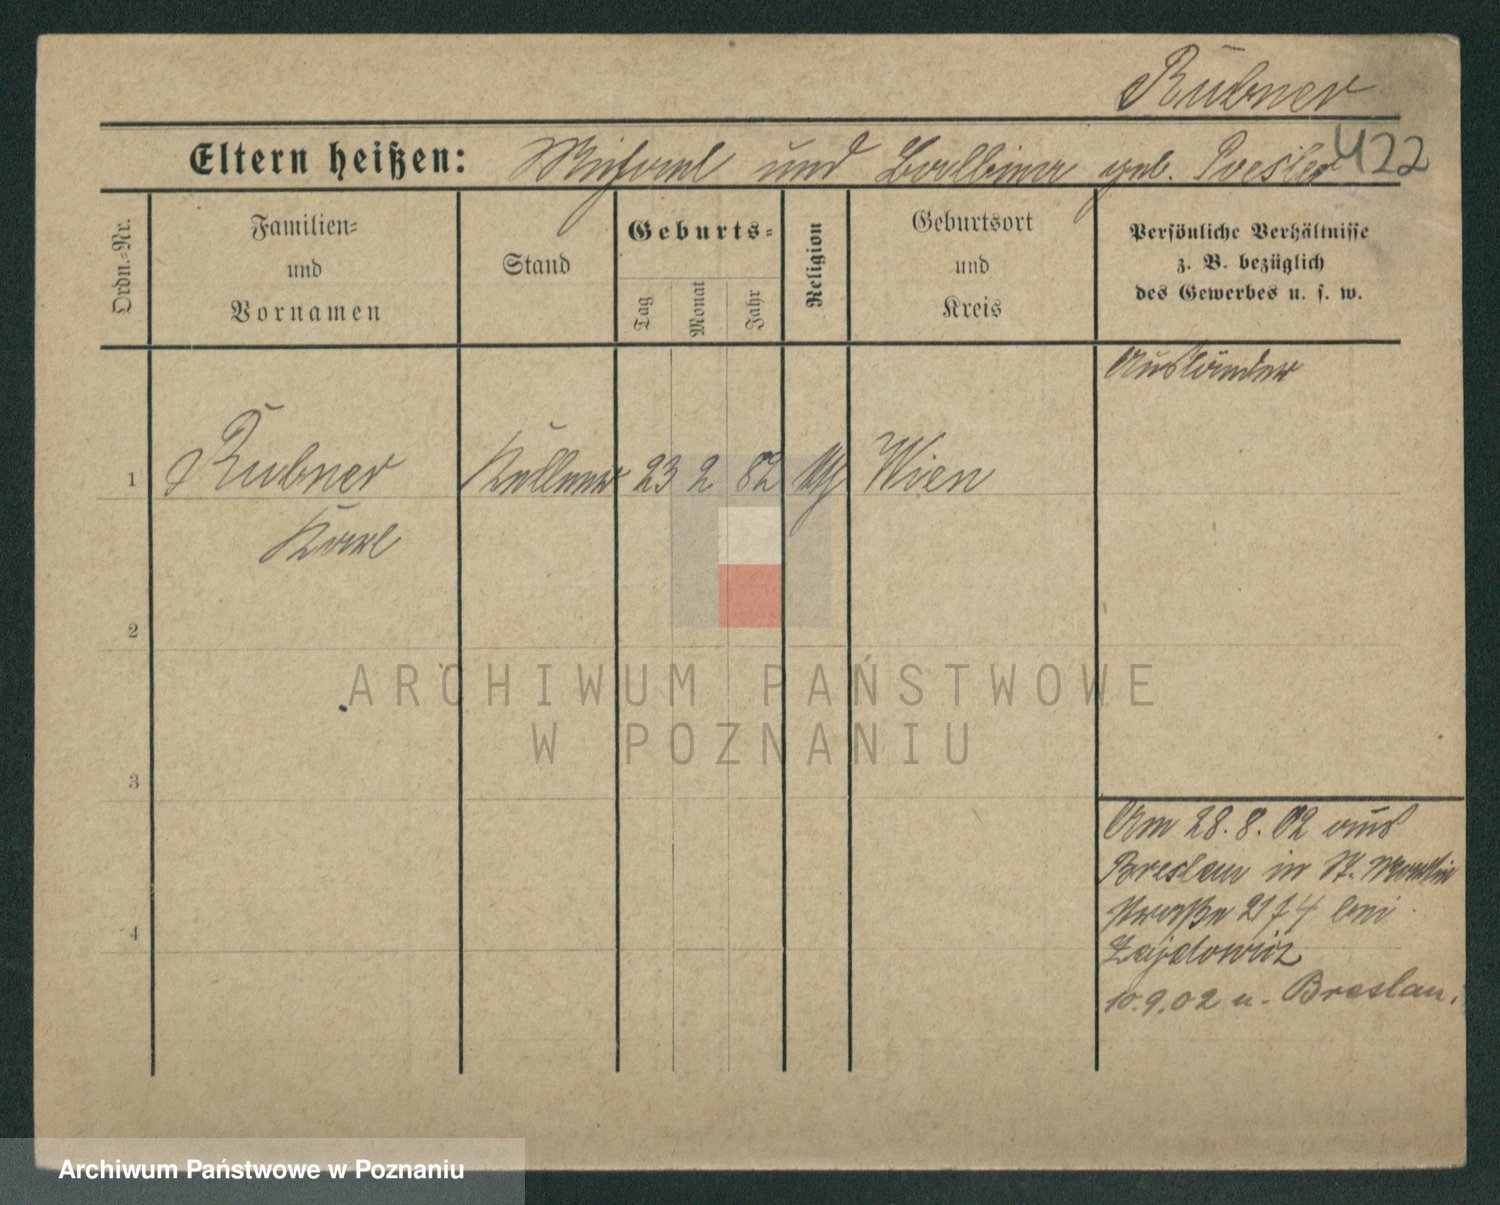 Rubner
422
Eltern heißen: Michael und Balbina geb. Poesler
Ordn.-Nr.
Familien-
und
Vornamen
Stand
Geburts-
Tag
Monat
Jahr
Religion
Geburtsort
und
Kreis
Persönliche Verhältnisse
z. B. bezüglich
des Gewerbes u. s. w.
Ausländer
1 Rubner Kellner 23 2 82 Wien
Karl
2
3
4
ARCHIWUM PAŃSTWOWE
W POZNANIU
Am 28.8.02 aus
Breslau in St. Martin
straße bei
Zajdowicz
10.9.02 n. Breslau.
Archiwum Państwowe w Poznaniu